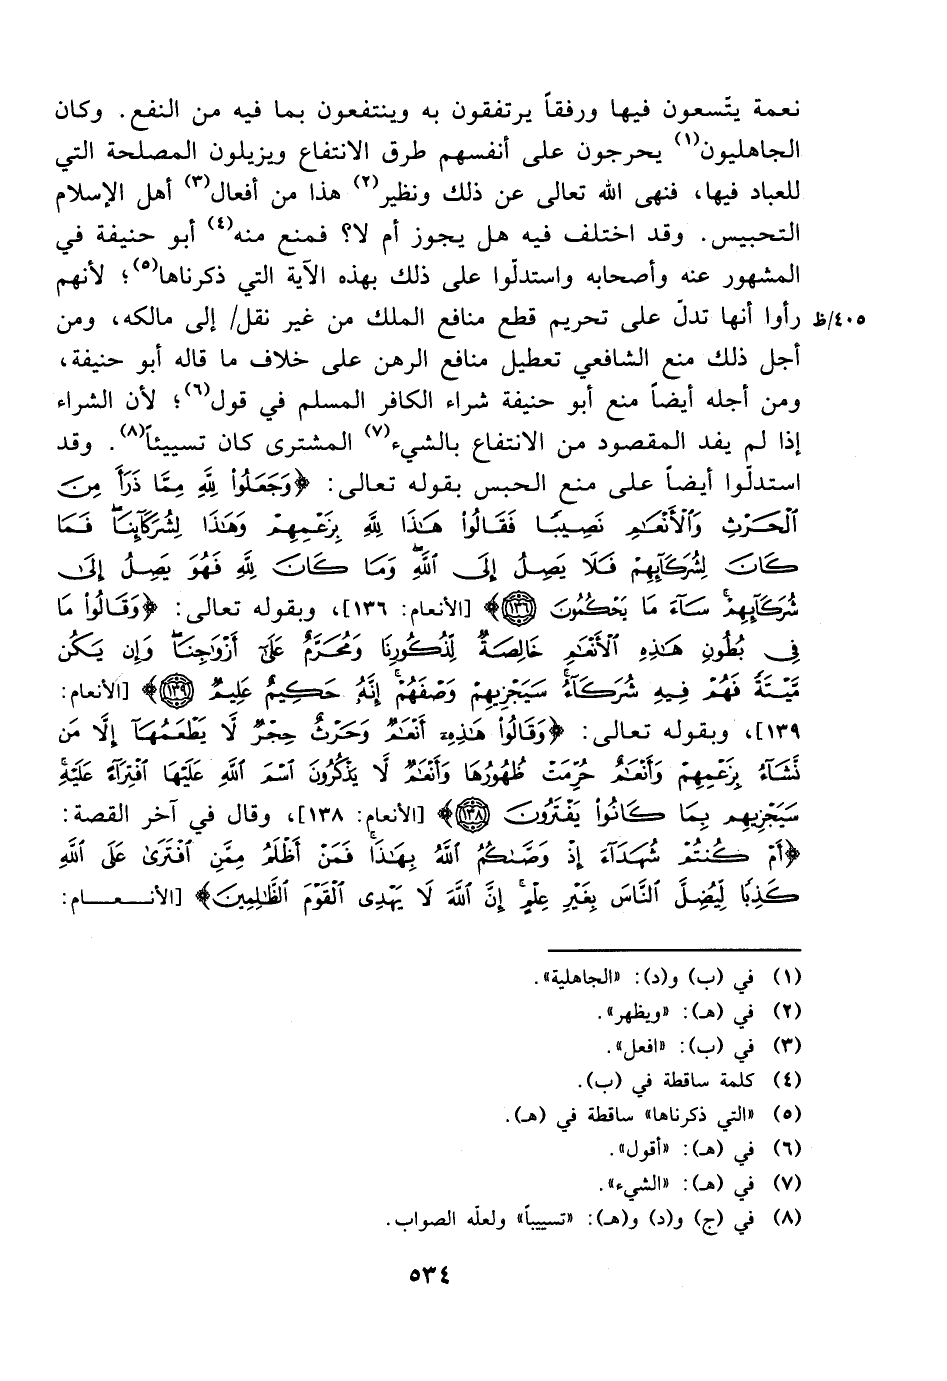 نعمة يتّسعون فيها ورفقاً يرتفقون به وينتفعون بما فيه من النفع. وكان
الجاهليون(١) يحرجون على أنفسهم طرق الانتفاع ويزيلون المصلحة التي
للعباد فيها، فنهى الله تعالى عن ذلك ونظير(٢) هذا من أفعال(٣) أهل الإسلام
التحبيس. وقد اختلف فيه هل يجوز أم لا؟ فمنع منه(٤) أبو حنيفة في
المشهور عنه وأصحابه واستدلّوا على ذلك بهذه الآية التي ذكرناها(٥)؛ لأنهم
رأوا أنها تدلّ على تحريم قطع منافع الملك من غير نقل/ إلى مالكه، ومن ٤٠٥/ظ
أجل ذلك منع الشافعي تعطيل منافع الرهن على خلاف ما قاله أبو حنيفة،
ومن أجله أيضاً منع أبو حنيفة شراء الكافر المسلم في قول(٦)؛ لأن الشراء
إذا لم يفد المقصود من الانتفاع بالشيء(٧) المشترى كان تسييئاً(٨). وقد
استدلّوا أيضاً على منع الحبس بقوله تعالى: ﴿وَجَعَلُوا۟ لِلَّهِ مِمَّا ذَرَأَ مِنَ
ٱلْحَرْثِ وَٱلْأَنْعَٰمِ نَصِيبًا فَقَالُوا۟ هَٰذَا لِلَّهِ بِزَعْمِهِمْ وَهَٰذَا لِشُرَكَآئِنَا ۖ فَمَا
كَانَ لِشُرَكَآئِهِمْ فَلَا يَصِلُ إِلَى ٱللَّهِ ۖ وَمَا كَانَ لِلَّهِ فَهُوَ يَصِلُ إِلَىٰ
شُرَكَآئِهِمْ ۗ سَآءَ مَا يَحْكُمُونَ ١٣٦﴾ [الأنعام: ١٣٦]، وبقوله تعالى: ﴿وَقَالُوا۟ مَا
فِى بُطُونِ هَٰذِهِ ٱلْأَنْعَٰمِ خَالِصَةٌ لِّذُكُورِنَا وَمُحَرَّمٌ عَلَىٰٓ أَزْوَٰجِنَا ۖ وَإِن يَكُن
مَّيْتَةً فَهُمْ فِيهِ شُرَكَآءُ ۚ سَيَجْزِيهِمْ وَصْفَهُمْ ۚ إِنَّهُۥ حَكِيمٌ عَلِيمٌ ١٣٩﴾ [الأنعام:
١٣٩]، وبقوله تعالى: ﴿وَقَالُوا۟ هَٰذِهِۦٓ أَنْعَٰمٌ وَحَرْثٌ حِجْرٌ لَّا يَطْعَمُهَآ إِلَّا مَن
نَّشَآءُ بِزَعْمِهِمْ وَأَنْعَٰمٌ حُرِّمَتْ ظُهُورُهَا وَأَنْعَٰمٌ لَّا يَذْكُرُونَ ٱسْمَ ٱللَّهِ عَلَيْهَا ٱفْتِرَآءً عَلَيْهِ ۚ
سَيَجْزِيهِم بِمَا كَانُوا۟ يَفْتَرُونَ ١٣٨﴾ [الأنعام: ١٣٨]، وقال في آخر القصة:
﴿أَمْ كُنتُمْ شُهَدَآءَ إِذْ وَصَّىٰكُمُ ٱللَّهُ بِهَٰذَا ۚ فَمَنْ أَظْلَمُ مِمَّنِ ٱفْتَرَىٰ عَلَى ٱللَّهِ
كَذِبًا لِّيُضِلَّ ٱلنَّاسَ بِغَيْرِ عِلْمٍ ۗ إِنَّ ٱللَّهَ لَا يَهْدِى ٱلْقَوْمَ ٱلظَّٰلِمِينَ﴾ [الأنعـــام:
(١) في (ب) و(د): «الجاهلية».
(٢) في (هـ): «ويظهر».
(٣) في (ب): «افعل».
(٤) كلمة ساقطة في (ب).
(٥) «التي ذكرناها» ساقطة في (هـ).
(٦) في (هـ): «أقول».
(٧) في (هـ): «الشيء».
(٨) في (ج) و(د) و(هـ): «تسييباً» ولعلّه الصواب.
٥٣٤